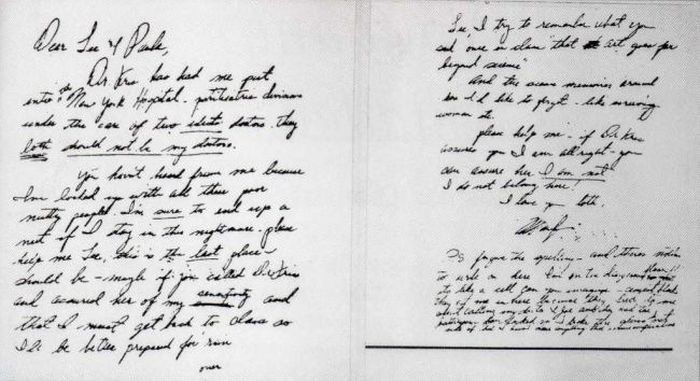 Dear Lee & Paula,
Dr. Kris has had me put
into the New York Hospital - pshikatric division
under the care of two idiot doctors. they
both should not be my doctors.
You haven't heard from me because
I'm locked up with all these poor
nutty people. I'm sure to end up a
nut if I stay in this nightmare. please
help me Lee, this is the last place I
should be - maybe if you called Dr Kris
and assured her of my sensitivity and
that I must get back to class so
I'll be better prepared for rain
over
Lee, I try to remember what you
said once in class "that art goes far
beyond science"
And the scary memories around
me I'd like to forget - like screaming
woman etc.
please help me - if Dr Kris
assures you I am all right - you
can assure her I am not
I do not belong here!
I love you both.
P.S. forgive the spelling - and theres nothing
to write on here. I'm on the dangerous floor!!
its like a cell. can you imagine - cement blocks
they put me in here because they lied to me
about calling my doctor & Joe and they had the
bathroom door locked so I broke the glass